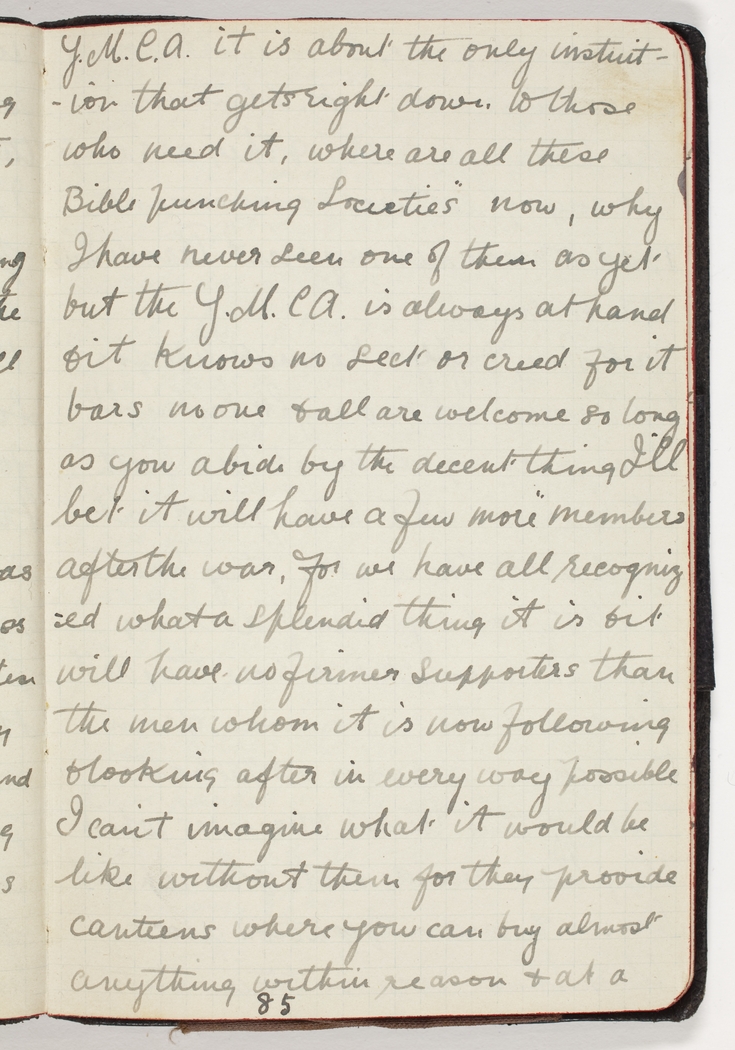 Y.M.C.A. it is about the only instuit-
-ion that gets right down to those
who need it, where are all these
Bible punching Societies" now, why
I have never seen one of them as yet
but the Y.M.C.A. is always at hand
& it knows no sect or creed for it
bars no one & all are welcome so long
as you abide by the decent thing I'll
bet it will have a few more members
after the war, for we have all recogniz
=ed what a splendid thing it is & it
will have no firmer supporters than
the men whom it is now following
& looking after in every way possible
I can't imagine what it would be
like without them for they provide
canteens where you can buy almost
anything within reason & at a
85